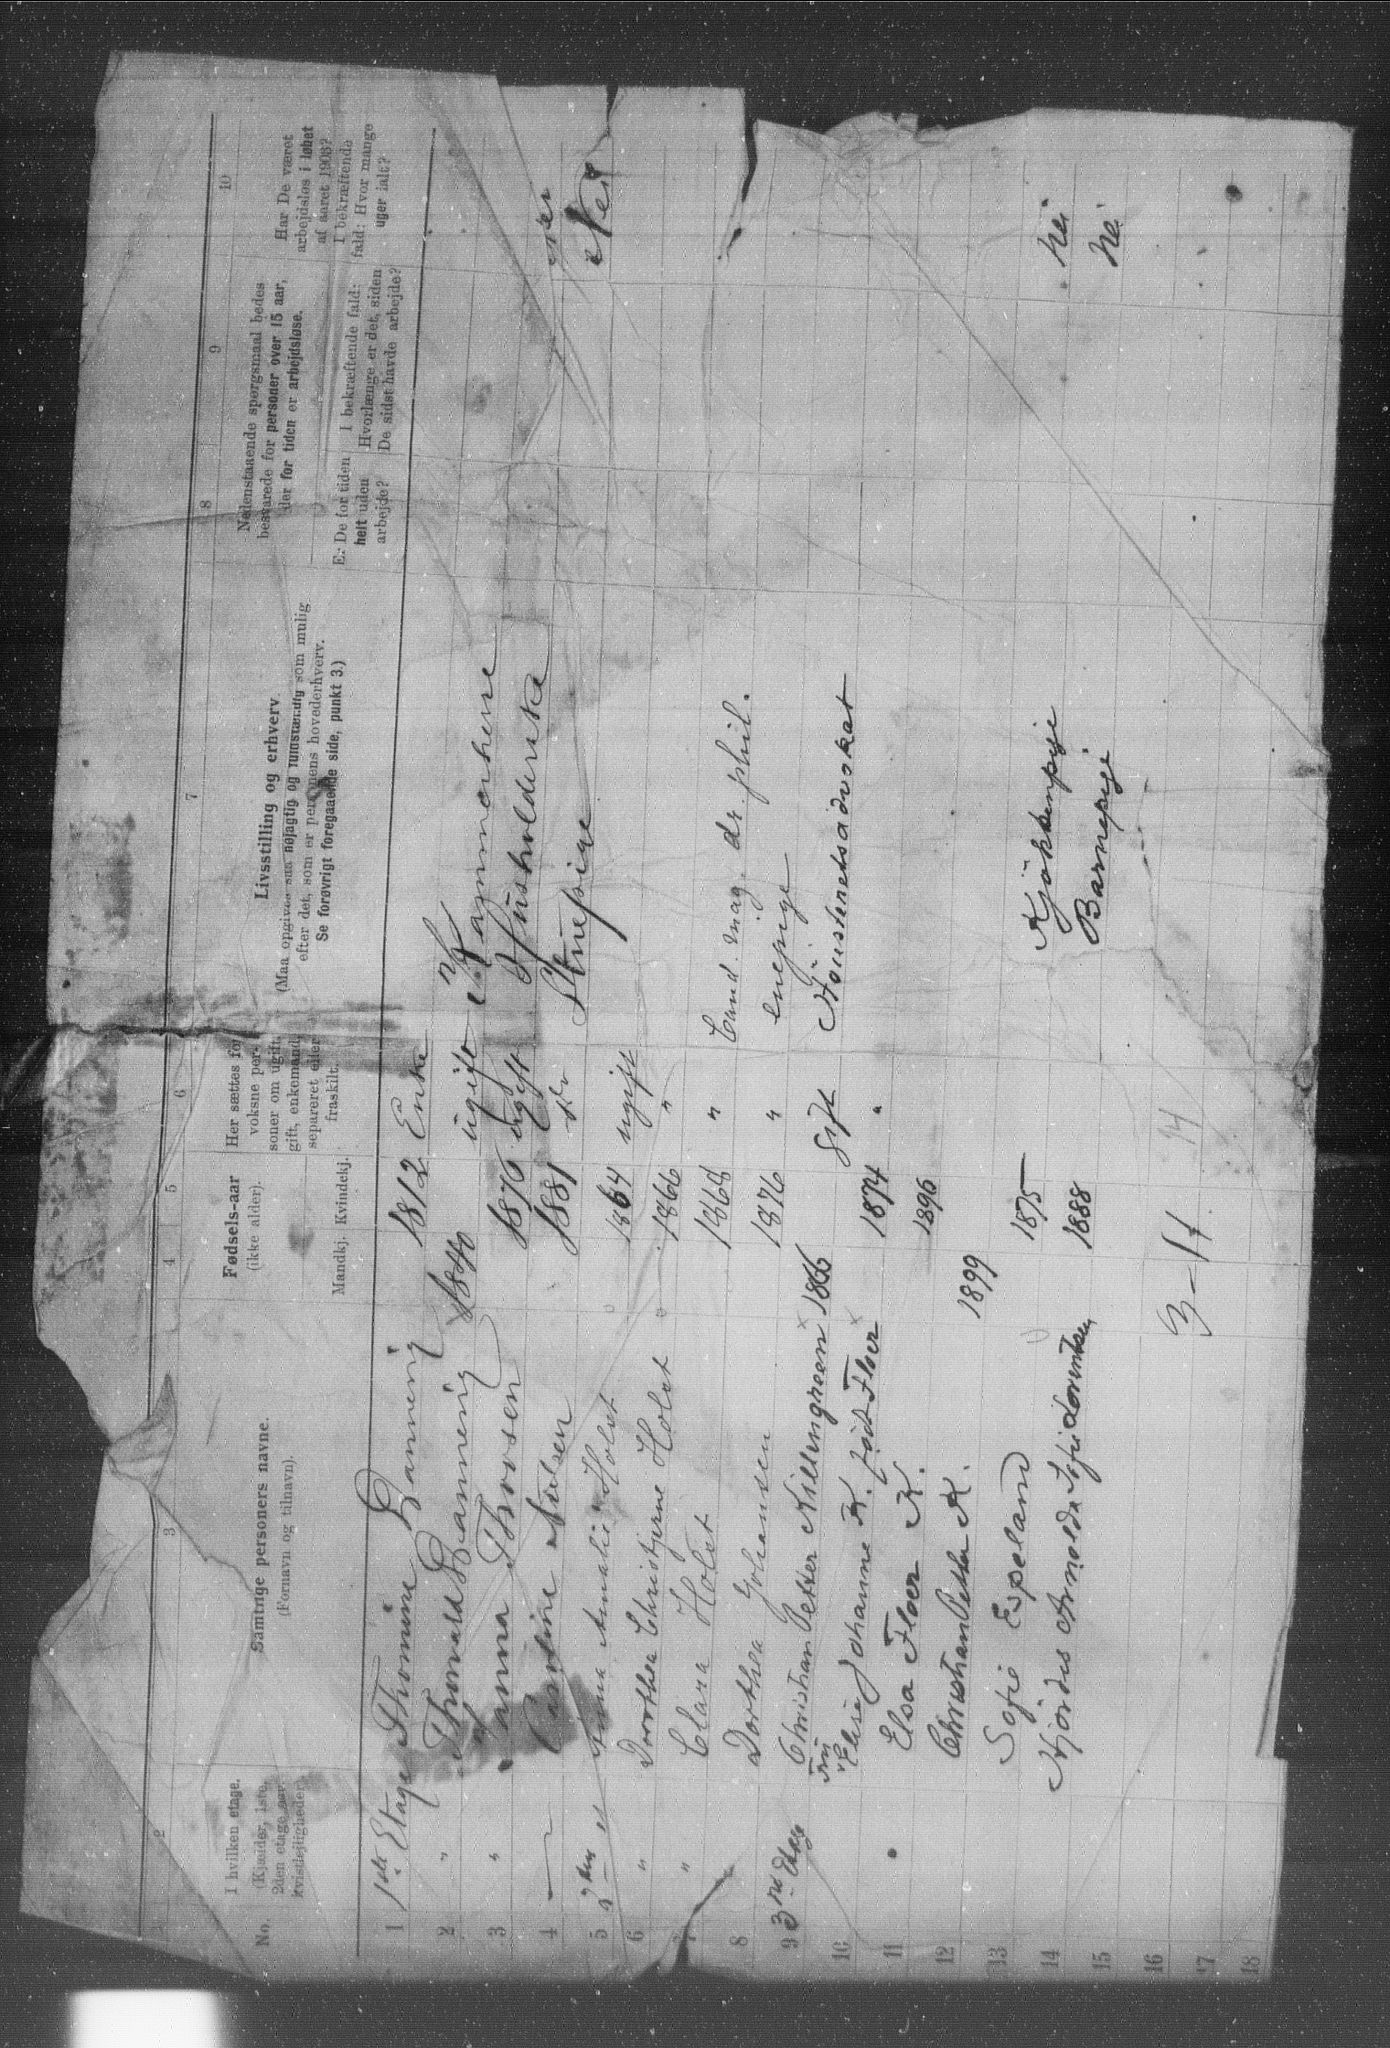 2 3 4 5 6 7 8 9 10
No.
I hvilken etage.
(Kjælder, 1ste,
2den etage
kvistlejligheder
Samtlige personers navne.
(Fornavn og tilnavn).
Fødsels-aar
(ikke alder).
Mandkj. Kvindekj.
Her sættes for
voksne per-
soner om ugift,
gift, enkemand,
separeret eller
fraskilt.
Livsstilling og erhverv
(Maa opgives saa nøjagtig og fuldstændig som mulig
efter det, som er personens hovederhverv.
Se forøvrigt foregaaende side, punkt 3.)
Nedenstaaende spørgsmaal bedes
besvarede for personer over 15 aar,
der for tiden er arbejdsløse.
Er De for tiden
helt uden
arbejde?
I bekræftende fald:
Hvorlænge er det, siden
De sidst havde arbejde?
Har De været
arbejdsløs i løbet
af aaret 1903?
I bekræftende
fald: Hvor mange
uger ialt?
1 1ste Etage Thomine 1812 Enke
2 " Thorvald 1840 ugift
3 " Hanna Thorsen 1870 ugift Husholderske
4 Caroline Nielsen 1881 Do Stuepige
5 Anna Amalie Holst 1864 ugift Nei
6 " Dorothea Christjane Holst 1866 "
7 " Clara Holst 1868 " Cand. mag. dr. phil.
8 Dorthea Johansen 1876 " enepige
9 3die Etage Christian Petter Killengreen 1866 gift Høiesteretsadvokat
10 Fru Elise Johanne K. født Floer 1874 "
11 Elsa Floer K. 1896
12 Christian Petter K. 1899
13 Sofie Espeland 1875 Kjøkkenpige nei
14 Hjördis Arnolda Sofie 1888 Barnepige nei
15
16 3-11 14
17
18